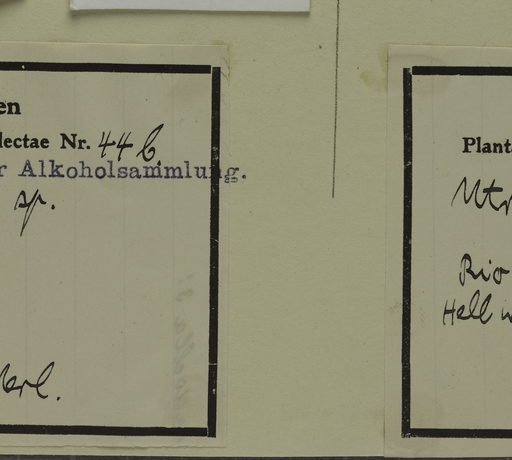 en
lectae Nr. 446
r Alkoholsammlung.
sp.
Plant
Utr
Rio
Hell